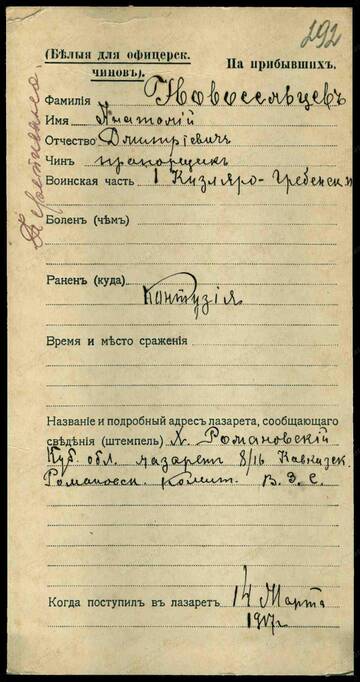 292
(Бѣлыя для офицерск. чиновъ).
На прибывшихъ.
Фамилія Новосельцевъ
Имя Анатолій
Отчество Дмитріевичъ
Чинъ прапорщикъ
Воинская часть 1 Кизляро-Гребенск. п
Боленъ (чѣмъ)
Раненъ (куда)
Контузія
Время и мѣсто сраженія
Названіе и подробный адресъ лазарета, сообщающаго
свѣдѣнія (штемпель) Х. Романовскій
Куб. обл. лазарет 8/16 Кавказск.
Романовск. комит. В. З. С.
Когда поступилъ въ лазаретъ 14 Марта
1917г